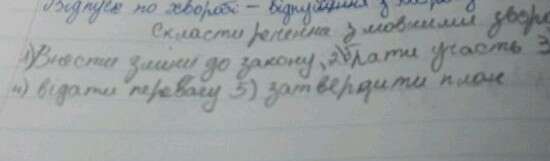 Відпуск по хворобі – відпущення з
Скласти речення з мовними звор
1) Внести зміни до закону, 2) брати участь 3
4) відати перевагу 5) затвердити план